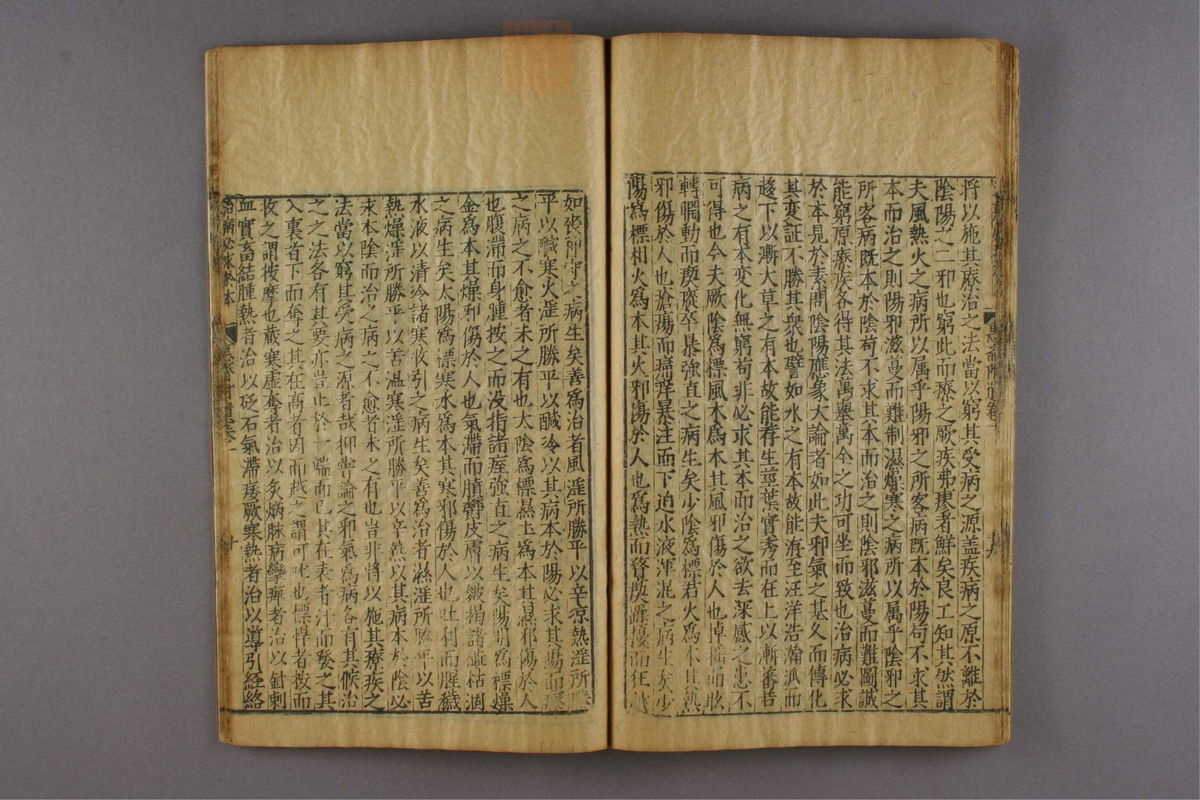 將以施其療治之法當以窮其受病之源盖疾病之原不離於
陰陽之二邪也窮此而療之厥疾弗瘳者鮮矣良工知其然謂
夫風熱火之病所以属乎陽邪之所客病既本於陽苟不求其
本而治之則陽邪滋蔓而難制濕燥寒之病所以属乎陰邪之
所客病既本於陰苟不求其本而治之則陰邪滋蔓而難圖誠
能窮原療疾各得其法萬舉萬全之功可坐而致也治病必求
於本見於素問陰陽應象大論者如此夫邪氣之基久而傳化
其变証不勝其衆也譬如水之有本故能游至汪洋浩瀚泒而
趍下以漸大草之有本故能荐生莖葉實秀而在上以漸蕃若
病之有本变化無窮苟非必求其本而治之欲去深感之患不
可得也今夫厥陰為標風木為本其風邪傷於人也掉摇而眩
轉瞤動而瘈瘲卒暴強直之病生矣少陰為標君火為本其熱
邪傷於人也瘡瘍而痛痒暴注而下迫水液渾混之病生矣少
陽為標相火為本其火邪傷於人也為熱而瞀瘛躁擾而狂越
如喪神守之病生矣善為治者風淫所勝平以辛凉熱淫所勝
平以鹹寒火淫所勝平以鹹冷以其病本於陽必求其陽而療
之病之不愈者未之有也太陰為標濕土為本其濕邪傷於人
也腹滿而身腫按之而没指諸痙強直之病生矣陽明為標燥
金為本其燥邪傷於人也氣滯而膹鬱皮膚以皴揭諸澁枯涸
之病生矣太陽為標寒水為本其寒邪傷於人也吐利而腥穢
水液以清冷諸寒收引之病生矣善為治者濕淫所勝平以苦
熱燥淫所勝平以苦温寒淫所勝平以辛熱以其病本於陰必
求本陰而治之病之不愈者未之有也豈非將以施其療疾之
法當以窮其受病之源者哉抑嘗論之邪氣為病各有其候治
之之法各有其要亦豈止於一端而已其在表者汗而發之其
入裏者下而奪之其在高者因而越之謂可吐也慓悍者按而
收之謂按摩也藏寒虚奪者治以灸焫脉病攣痺者治以針刺
血實畜結腫熱者治以砭石氣滯痿厥寒熱者治以導引經絡
治病必求於本